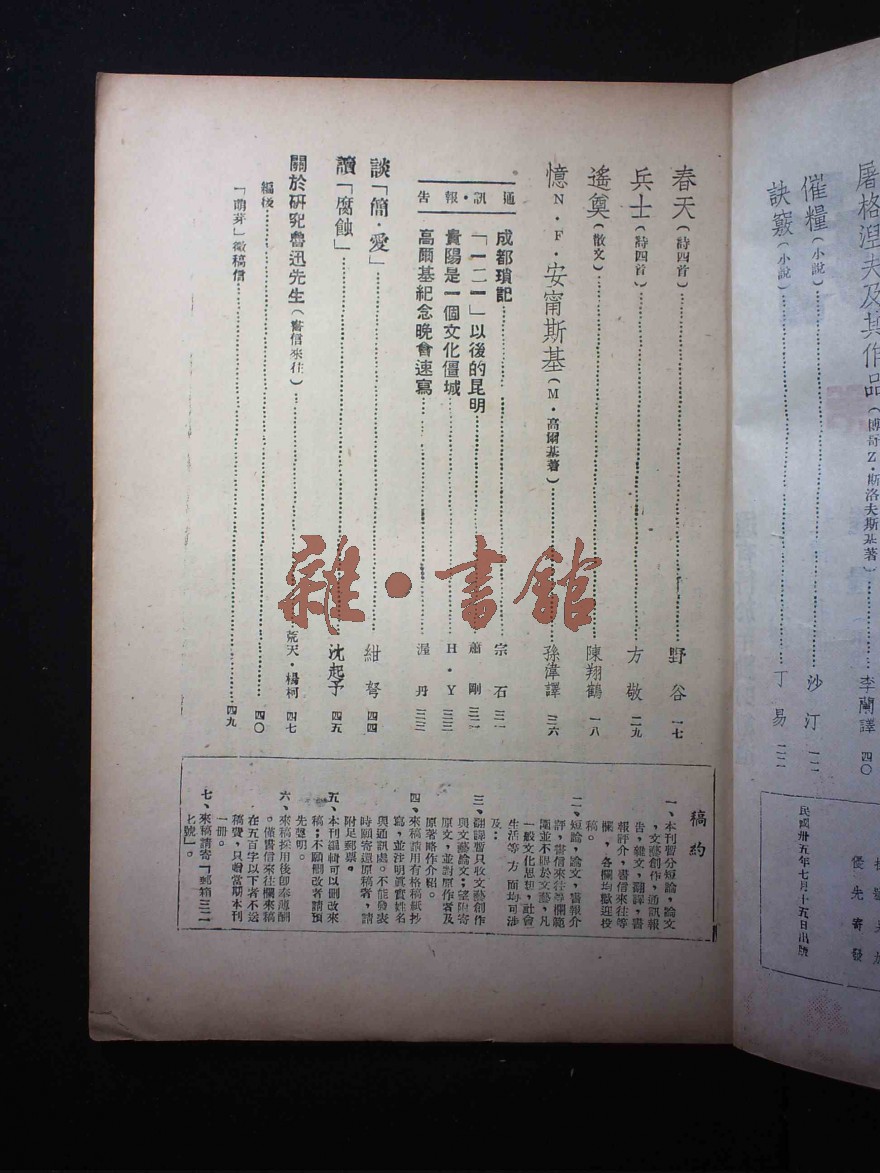 屠格涅夫及其作品（博奇Z·斯洛夫斯基著）……李蘭譯 四〇
催糧（小說）……沙汀 一二
訣竅（小說）……丁易 二二
優先寄發
民國卅五年七月十五日出版
春天（詩四首）……野谷 一七
兵士（詩四首）……方敬 二九
遙奠（散文）……陳翔鶴 一八
憶N·F·安甯斯基（M·高爾基著）……孫湋譯 三六
通訊·報告
成都瑣記……宗石 三一
「一二一」以後的昆明……蕭剛 三二
貴陽是一個文化僵城……H·Y 三三
高爾基紀念晚會速寫……渥丹 三三
談「簡·愛」……紺弩 四四
讀「腐蝕」……沈起予 四五
關於研究魯迅先生（書信來往）……荒天·楊柯 四七
編後……四〇
「萌芽」徵稿信……四九
稿約
一、本刊暫分短論，論文
，文藝創作，通訊報
告，雜文，翻譯，書
報評介，書信來往等
欄，各欄均歡迎投
稿。
二、短論，論文，書報介
評，書信來往等欄範
圍並不限於文藝，凡
一般文化思想，社會
生活等方面均可涉
及：
三、翻譯暫只收文藝創作
與文藝論文；望附寄
原文，並對原作者及
原著略作介紹。
四、來稿請用有格稿紙抄
寫，並注明真實姓名
與通訊處。不能發表
時願寄還原稿者，請
附足郵票。
五、本刊編輯可以刪改來
稿；不願刪改者請預
先聲明。
六、來稿採用後卽奉薄酬
。僅書信來往欄來稿
在五百字以下者不送
稿費，只贈當期本刊
一冊。
七、來稿請寄「郵箱三二
七號」。
雜·書館